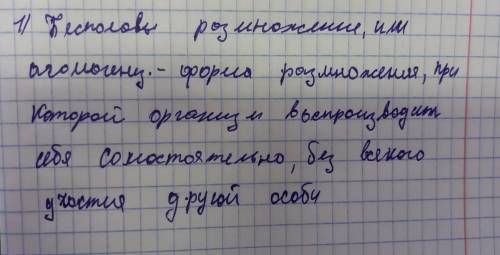 1) Бесполое размножение, или
агамогенез. - форма размножения, при
которой организм воспроизводит
себя самостоятельно, без всякого
участия другой особи